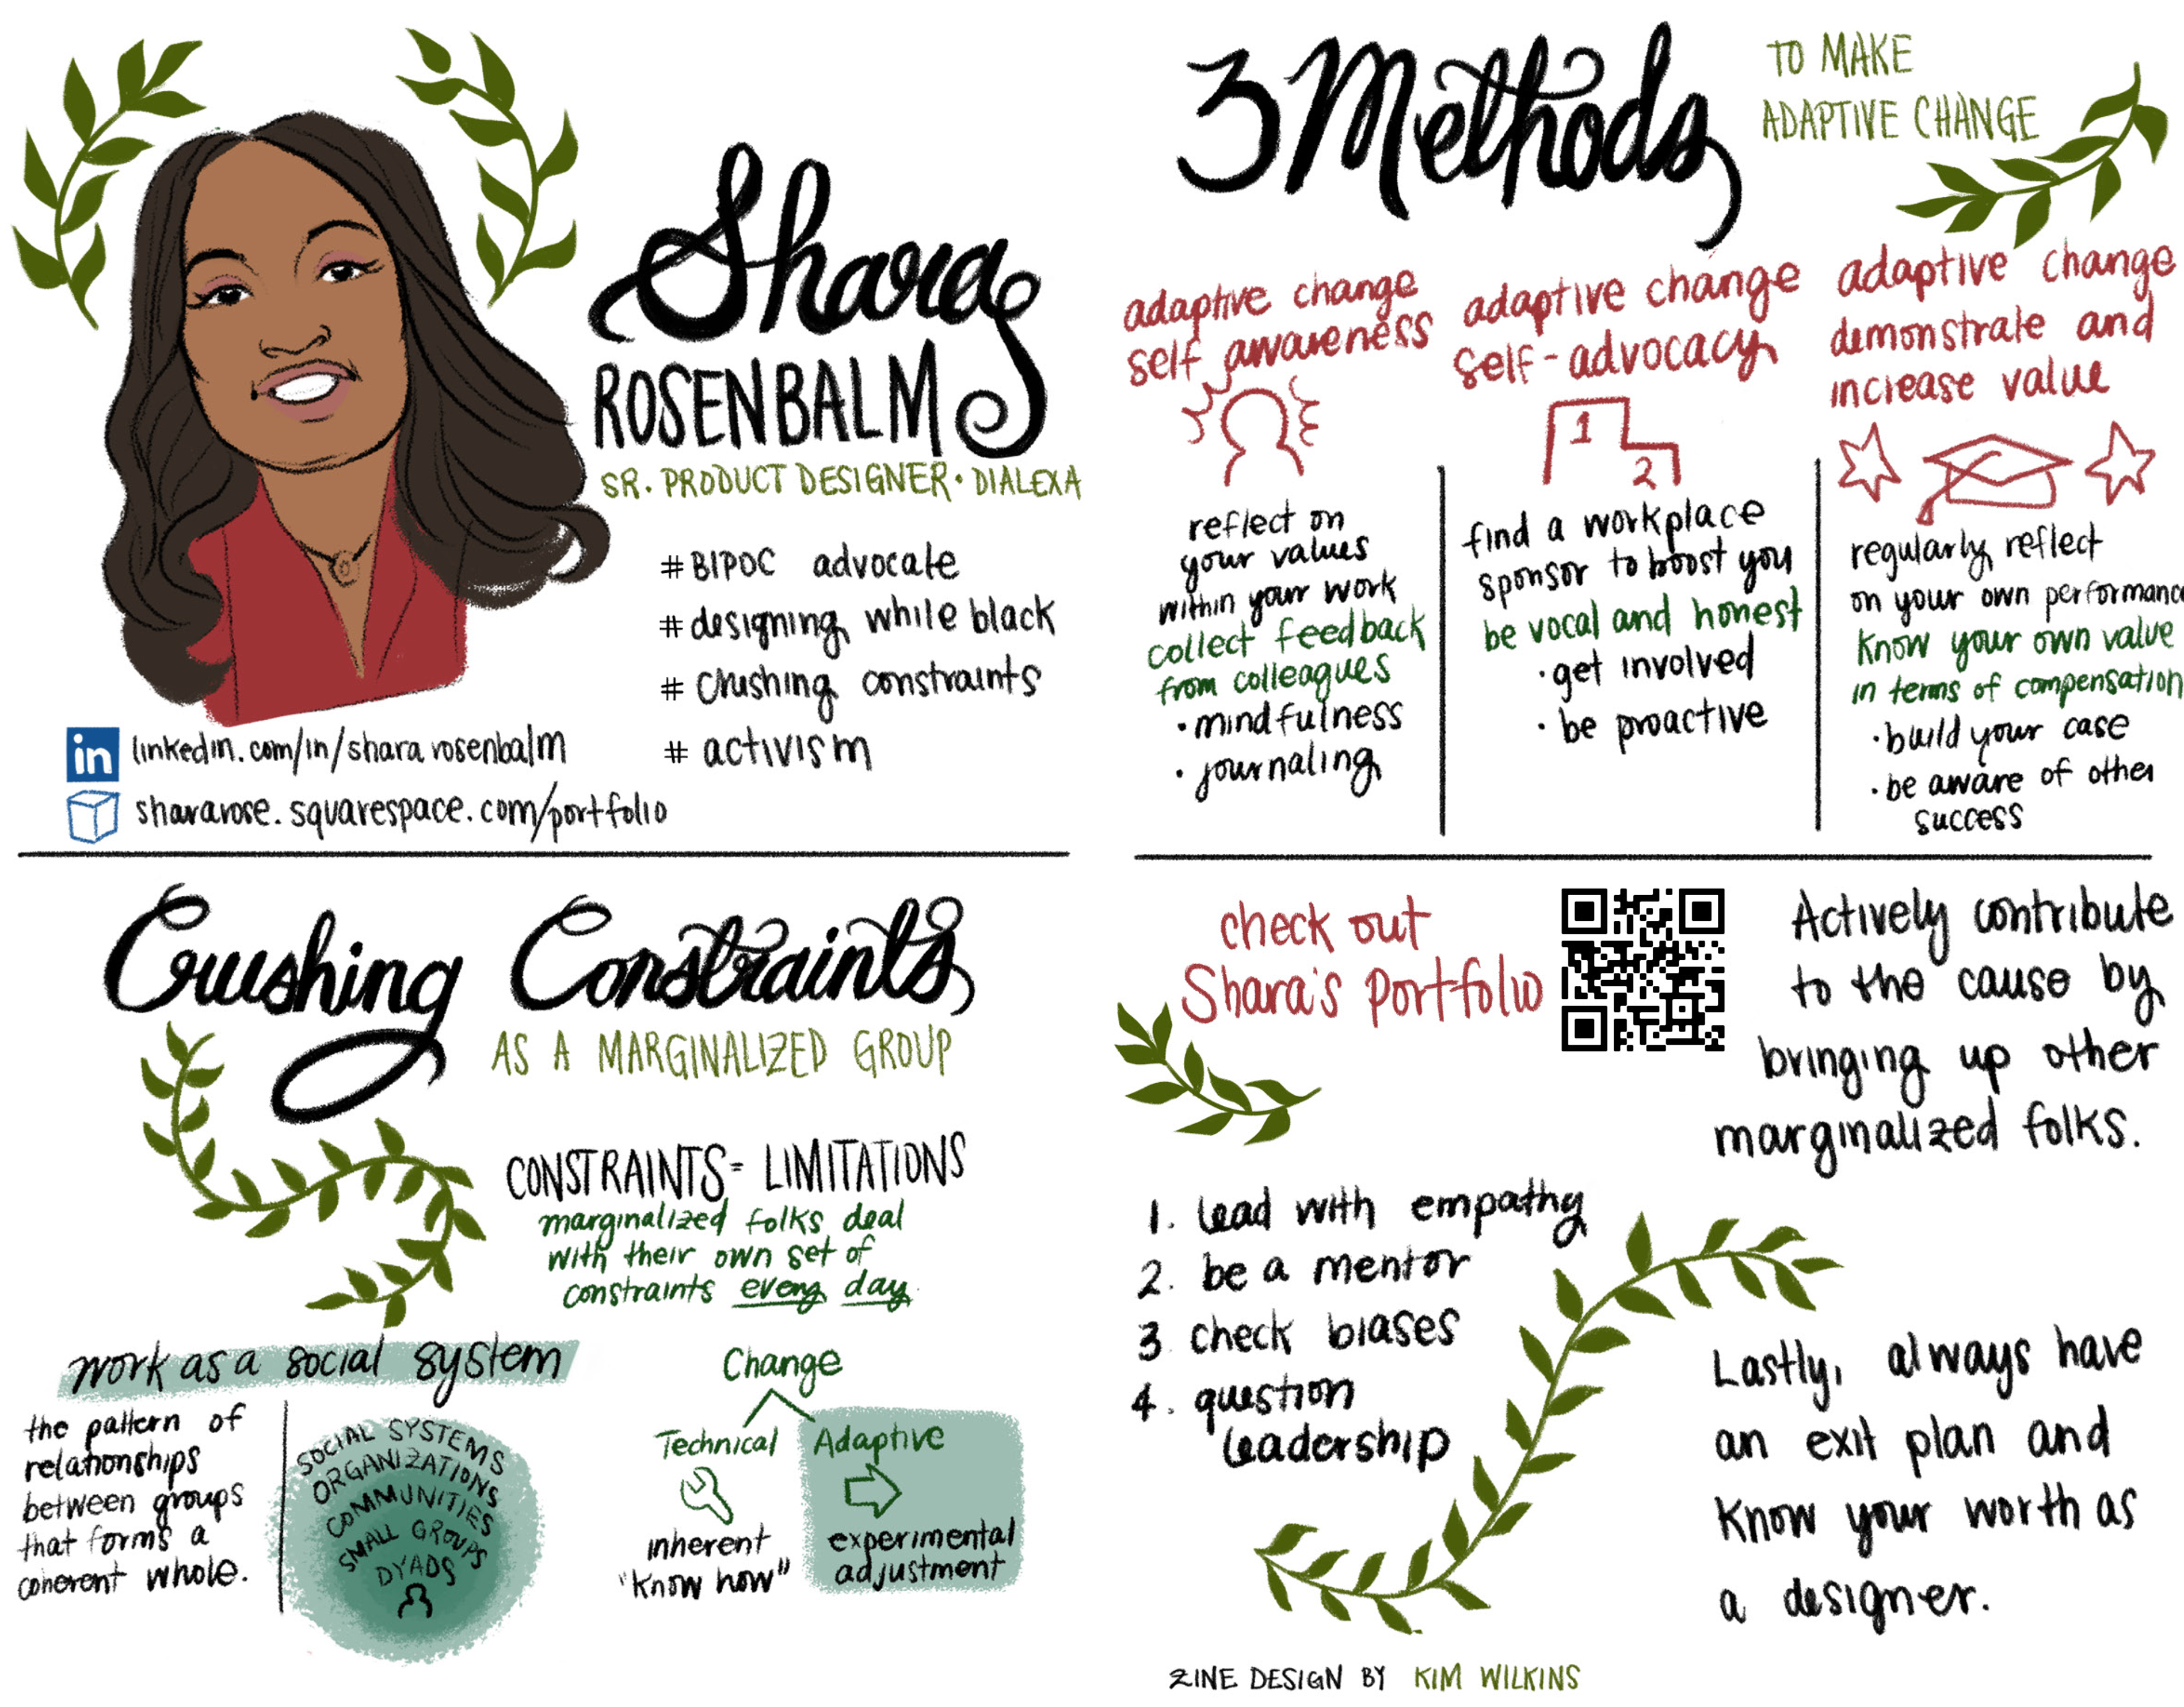 Shara
ROSENBALM
SR. PRODUCT DESIGNER · DIALEXA
# BIPOC advocate
# designing while black
# crushing constraints
# activism
in linkedin.com/in/shararosenbalm
shararose.squarespace.com/portfolio
3 Methods
TO MAKE
ADAPTIVE CHANGE
adaptive change
self awareness
reflect on
your values
within your work
collect feedback
from colleagues
· mindfulness
· journaling
adaptive change
self-advocacy
1
2
find a workplace
sponsor to boost you
be vocal and honest
· get involved
· be proactive
adaptive change
demonstrate and
increase value
regularly reflect
on your own performance
know your own value
in terms of compensation
· build your case
· be aware of other
success
Crushing Constraints
AS A MARGINALIZED GROUP
CONSTRAINTS = LIMITATIONS
marginalized folks deal
with their own set of
constraints every day.
work as a social system
the pattern of
relationships
between groups
that forms a
coherent whole.
SOCIAL SYSTEMS
ORGANIZATIONS
COMMUNITIES
SMALL GROUPS
DYADS
Change
Technical
inherent
"know how"
Adaptive
experimental
adjustment
check out
Shara's Portfolio
Actively contribute
to the cause by
bringing up other
marginalized folks.
1. lead with empathy
2. be a mentor
3. check biases
4. question
leadership
Lastly, always have
an exit plan and
know your worth as
a designer.
ZINE DESIGN BY KIM WILKINS